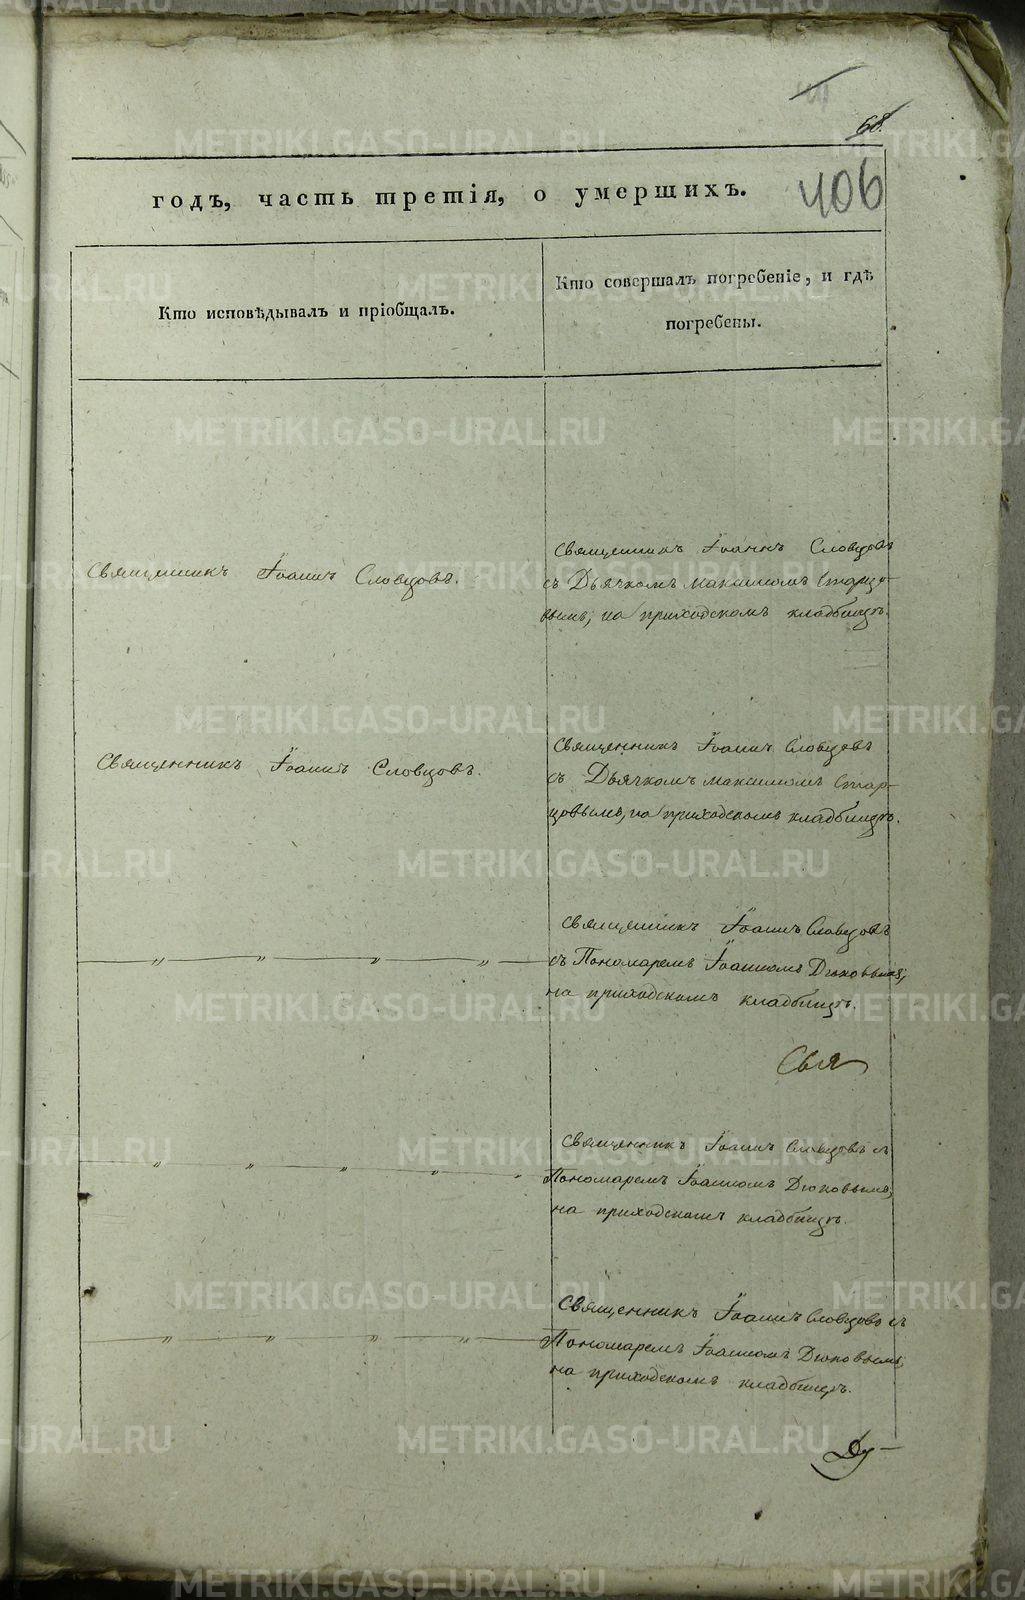 68.
406
годъ, часть третія, о умершихъ.
Кто исповѣдывалъ и пріобщалъ.
Кто совершалъ погребеніе, и гдѣ
погребены.
Священникъ Іоаннъ Словцовъ.
Священникъ Іоаннъ Словцовъ
съ Дьячкомъ Максимомъ Старцо-
вымъ, на приходскомъ кладбищѣ.
Священникъ Іоаннъ Словцовъ.
Священникъ Іоаннъ Словцовъ
съ Дьячкомъ Максимомъ Стар-
цовымъ, на приходскомъ кладбищѣ.
— „ — „ — „ — „ —
Священникъ Іоаннъ Словцовъ
съ Пономаремъ Іоанномъ Дюковымъ,
на приходскомъ кладбищѣ.
Свя
— „ — „ — „ — „ — „
Священникъ Іоаннъ Словцовъ съ
Пономаремъ Іоанномъ Дюковымъ,
на приходскомъ кладбищѣ.
— „ — „ — „ — „ —
Священникъ Іоаннъ Словцовъ съ
Пономаремъ Іоанномъ Дюковымъ,
на приходскомъ кладбищѣ.
METRIKI.GASO-URAL.RU